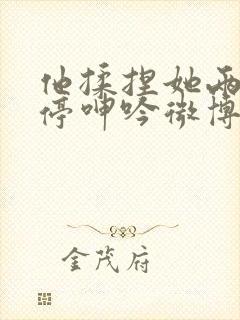 他揉捏她两
停呻吟微博
金茂府